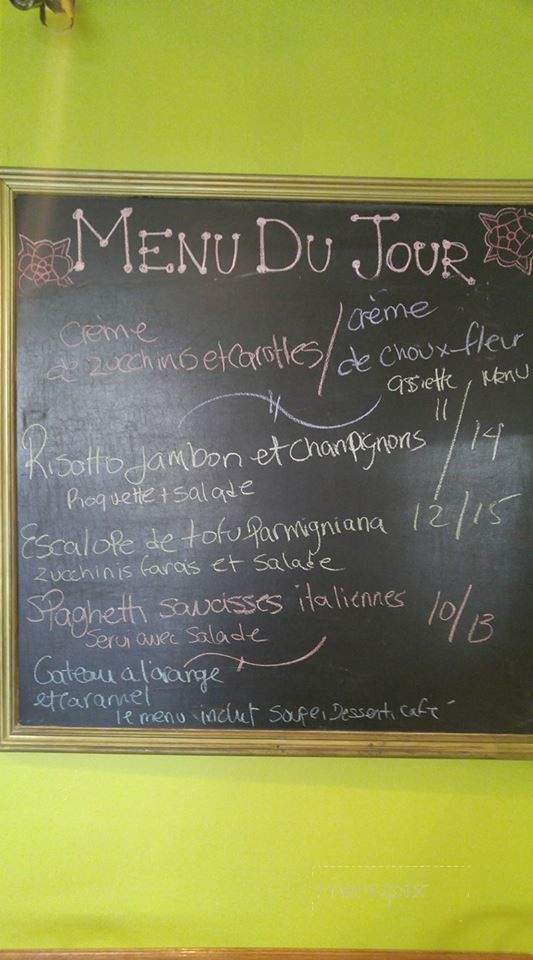 MENU DU JOUR
Crème
de zucchinis et carottes /
crème
de choux-fleur
assiette / Menu
11 / 14
Risotto Jambon et champignons
Roquette + Salade
Escalope de tofu Parmigniana 12/15
zucchinis farcis et Salade
Spaghetti saucisses italiennes 10/13
Servi avec Salade
Gateau a l'orange
et caramel
le menu inclut Soupe, Dessert, café